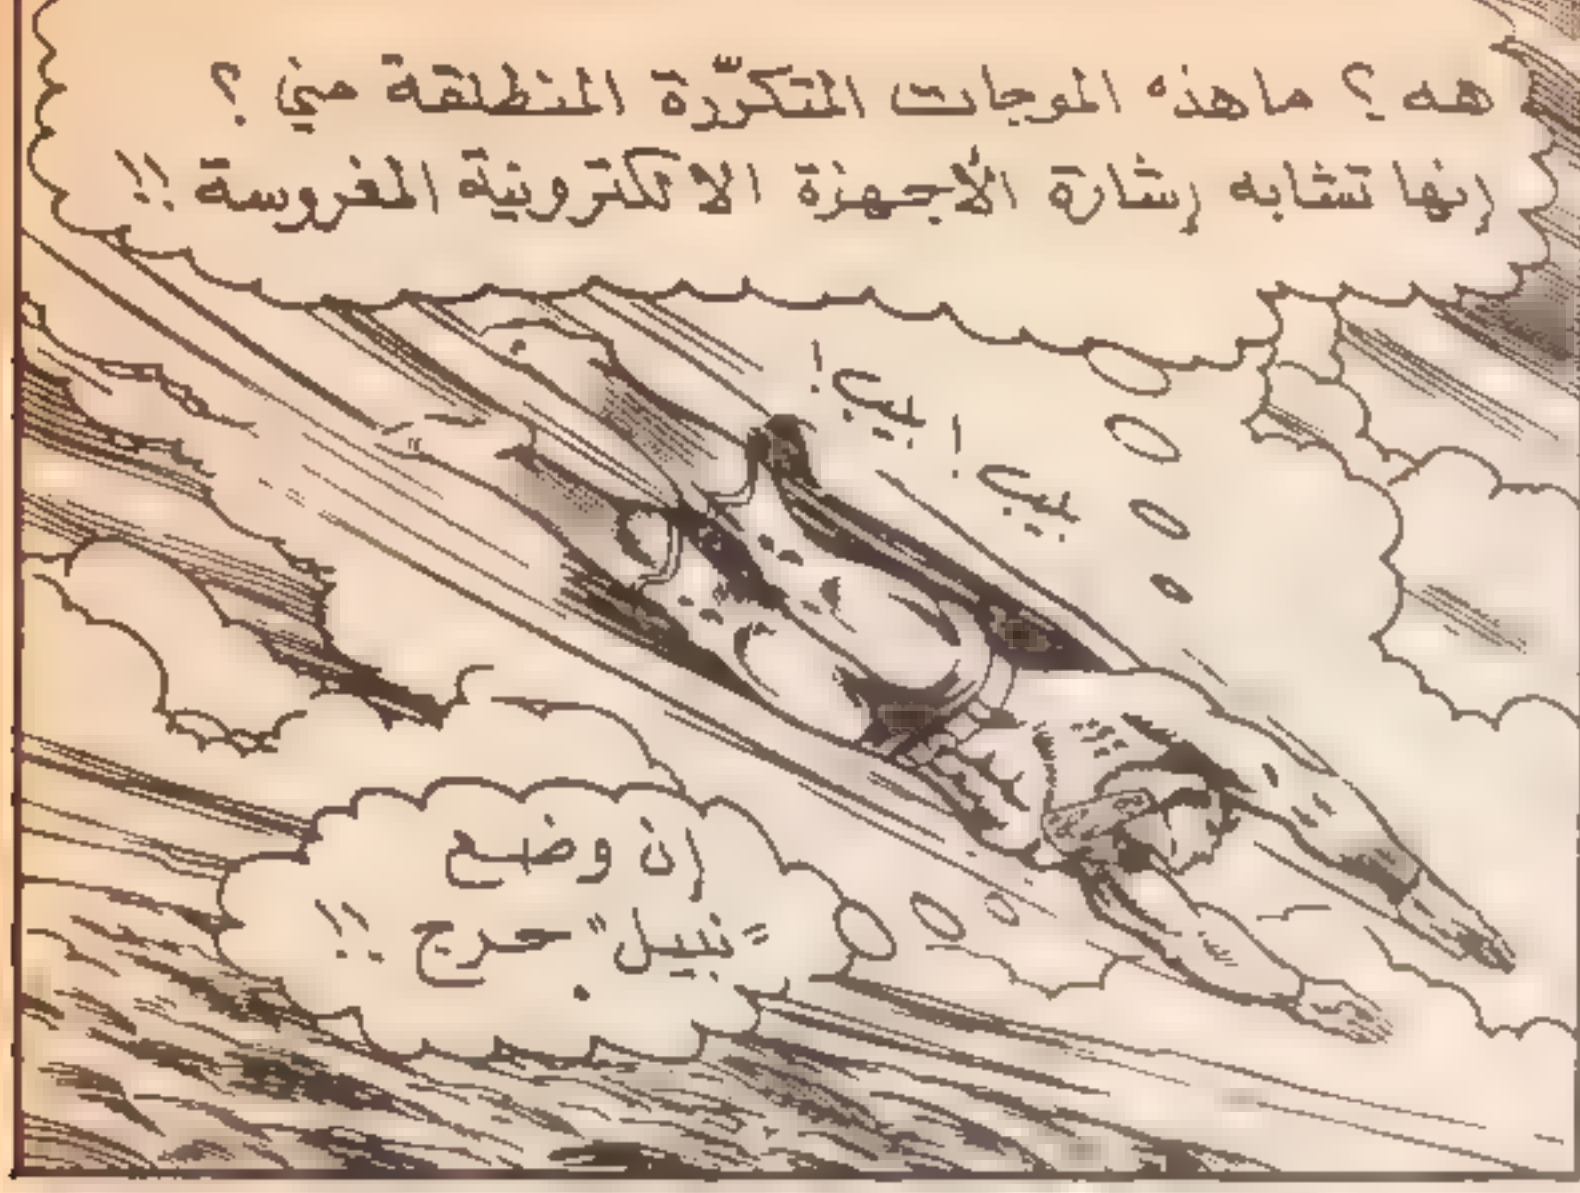 هه ؟ ماهذه الموجات المتكرّرة المنطلقة مني ؟
إنها تشابه إشارة الأجهزة الالكترونية المغروسة !!
بيب !
بيب !
إن وضع
"نبيل" حرج !!